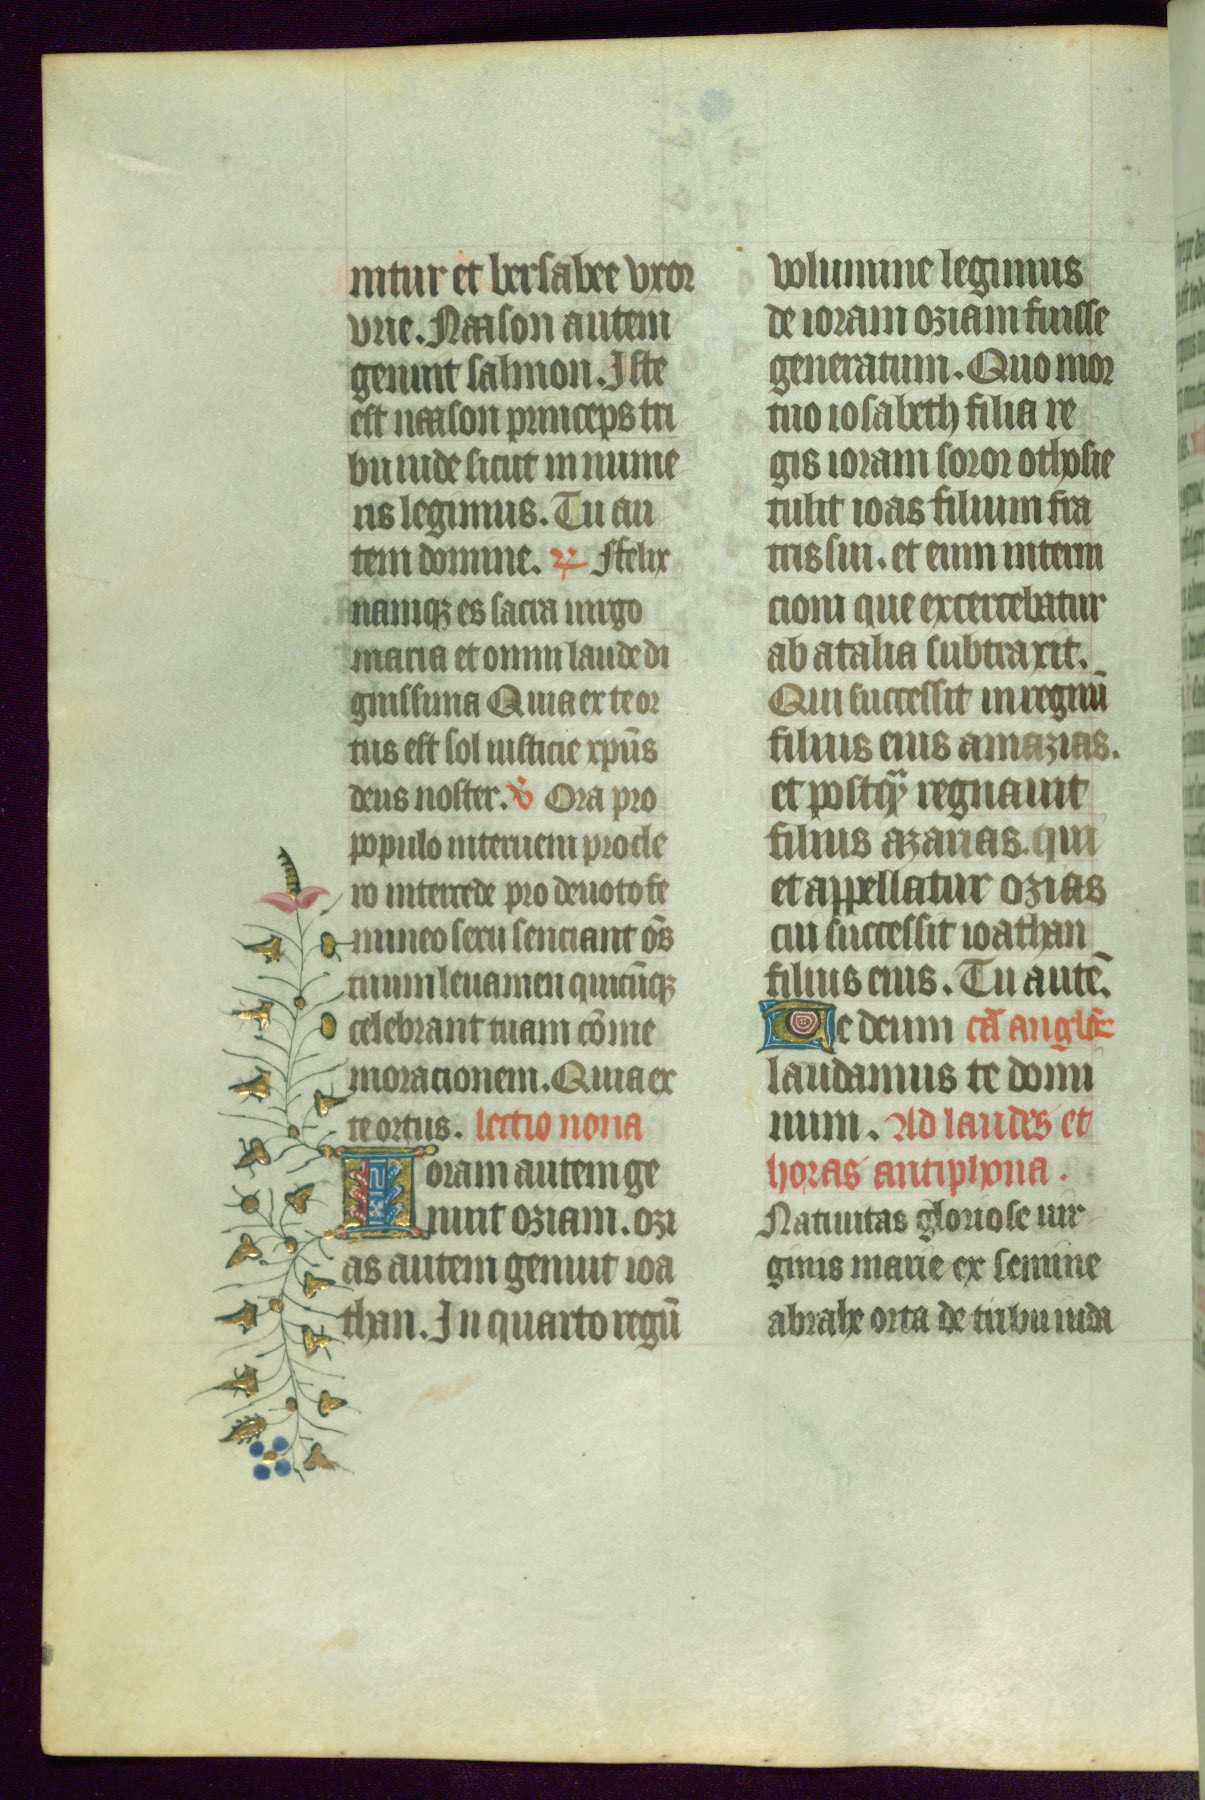 nitur et bersabee vxor
vrie. Naason autem
genuit salmon. Iste
est naason princeps tri
bu iude sicut in nume
ris legimus. Tu au
tem domine. ℟ Ffelix
namq; es sacra uirgo
maria et omni laude di
gnissima Quia ex te or
tus est sol iusticie xpūs
deus noster. ℣ Ora pro
populo interueni pro cle
ro intercede pro deuoto fe
mineo sexu senciant oēs
tuum leuamen quicūq;
celebrant tuam cōme
moracionem. Quia ex
te ortus. lectio nona
Ioram autem ge
nuit oziam. ozi
as autem genuit ioa
than. In quarto regū
volumine legimus
de ioram oziam fuisse
generatum. Quo mor
tuo iosabeth filia re
gis ioram soror othosie
tulit ioas filium fra
tris sui. et eum interni
cioni que excercebatur
ab atalia subtraxit.
Qui successit in regnū
filius eius amazias.
et postq̄ regnauit
filius azarias. qui
et appellatur ozias
cui successit ioathan
filius eius. Tu autē.
Te deum
laudamus te domi
num. Ad laudes et
horas antiphona.
Natiuitas gloriose uir
ginis marie ex semine
abrahe orta de tribu iuda